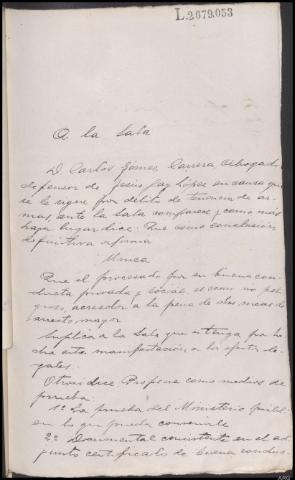 L.2679.053
A la Sala
D. Carlos Gómez Carrera Abogado
defensor de Jesús Gay López en causa que
se le sigue por delito de tenencia de ar-
mas, ante la Sala comparece y como más
haya lugar dice: Que como conclusión
definitiva informa
Unica
Que el procesado por su buena con-
ducta privada y social, el cam no peli-
groso, acreedor a la pena de dos meses de
arresto mayor
Suplica a la Sala que tenga por he-
cha esta manifestación, a los efectos le-
gales.
Otrosi dice Propone como medios de
prueba:
1º La prueba del Ministerio fiscal
en lo que pueda convenirle
2º Documental consistente en el ad-
junto certificado de buena conduc-